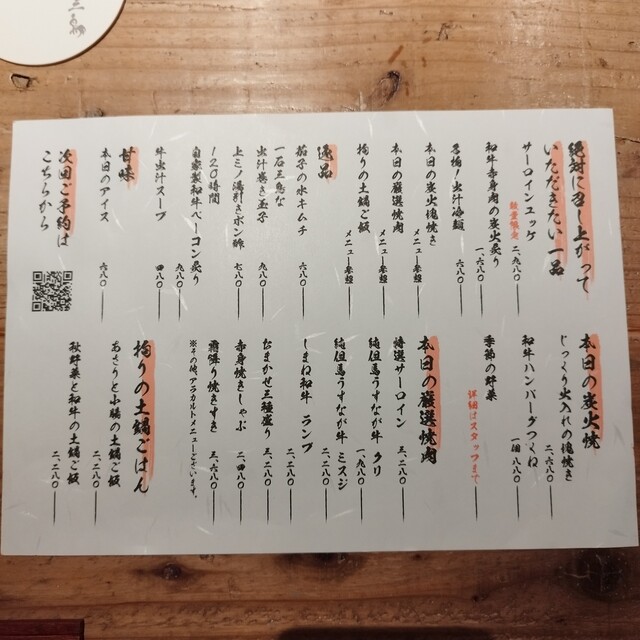 絶対に召し上がって
いただきたい一品
サーロインユッケ
数量限定 二、九八〇
和牛赤身肉の炭火炙り
一、六八〇
名物!出汁冷麺
六八〇
本日の炭火塊焼き
メニュー参照
本日の厳選焼肉
メニュー参照
拘りの土鍋ご飯
メニュー参照
逸品
茄子の水キムチ
六八〇
一石三鳥な
出汁巻き玉子
九八〇
上ミノ湯引きポン酢
七八〇
120時間
自家製和牛ベーコン炙り
九八〇
牛出汁スープ
四八〇
甘味
本日のアイス
六八〇
次回ご予約は
こちらから
本日の炭火焼
じっくり火入れの塊焼き
二、六八〇
和牛ハンバーグつくね
一個 八八〇
季節の野菜
詳細はスタッフまで
本日の厳選焼肉
特選サーロイン
三、二八〇
純但馬うすなが牛 クリ
一、九八〇
純但馬うすなが牛 ミスジ
二、二八〇
しまね和牛 ランプ
二、二八〇
おまかせ三種盛り
三、二八〇
赤身焼きしゃぶ
二、四八〇
霜降り焼きすき
三、六八〇
※その他、アラカルトメニューございます。
拘りの土鍋ごはん
あさりと小腸の土鍋ご飯
二、二八〇
秋野菜と和牛の土鍋ご飯
二、二八〇